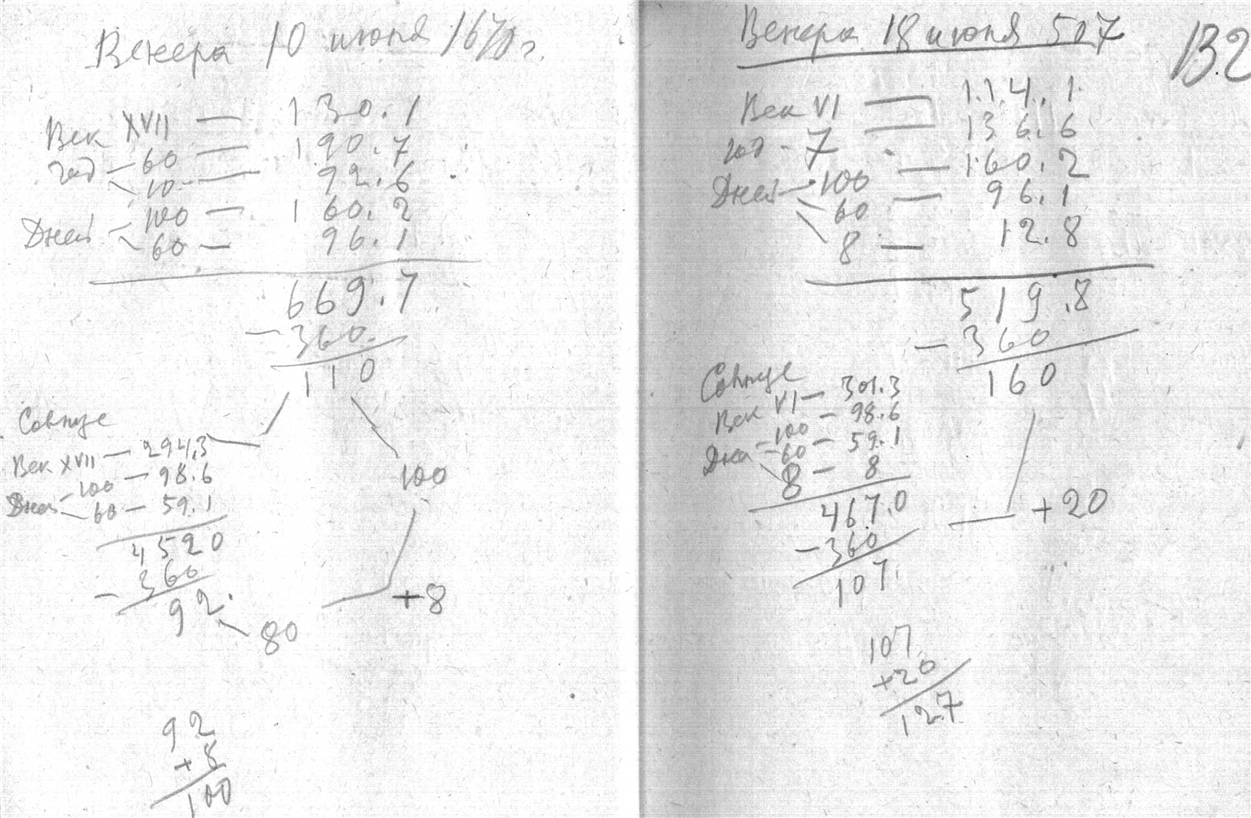 Венера 10 июня 1670 г.
Век XVII — 130.1
год — 60 — 190.7
10 — 92.6
Дней — 100 — 160.2
60 — 96.1
669.7
— 360.
110
Солнце
Век XVII — 294,3
100 — 98.6
Дней — 60 — 59.1
4520
— 360
92.
80
100
+8
92
+8
100
Венера 18 июня 507
132
Век VI — 114.1
год - 7 — 136.6
Дней — 100 — 160.2
60 — 96.1
8 — 12.8
519.8
— 360
160
Солнце
Век VI — 301.3
100 — 98.6
Дней — 60 — 59.1
8 — 8
467.0
— 360
107.
+20
107
+20
127